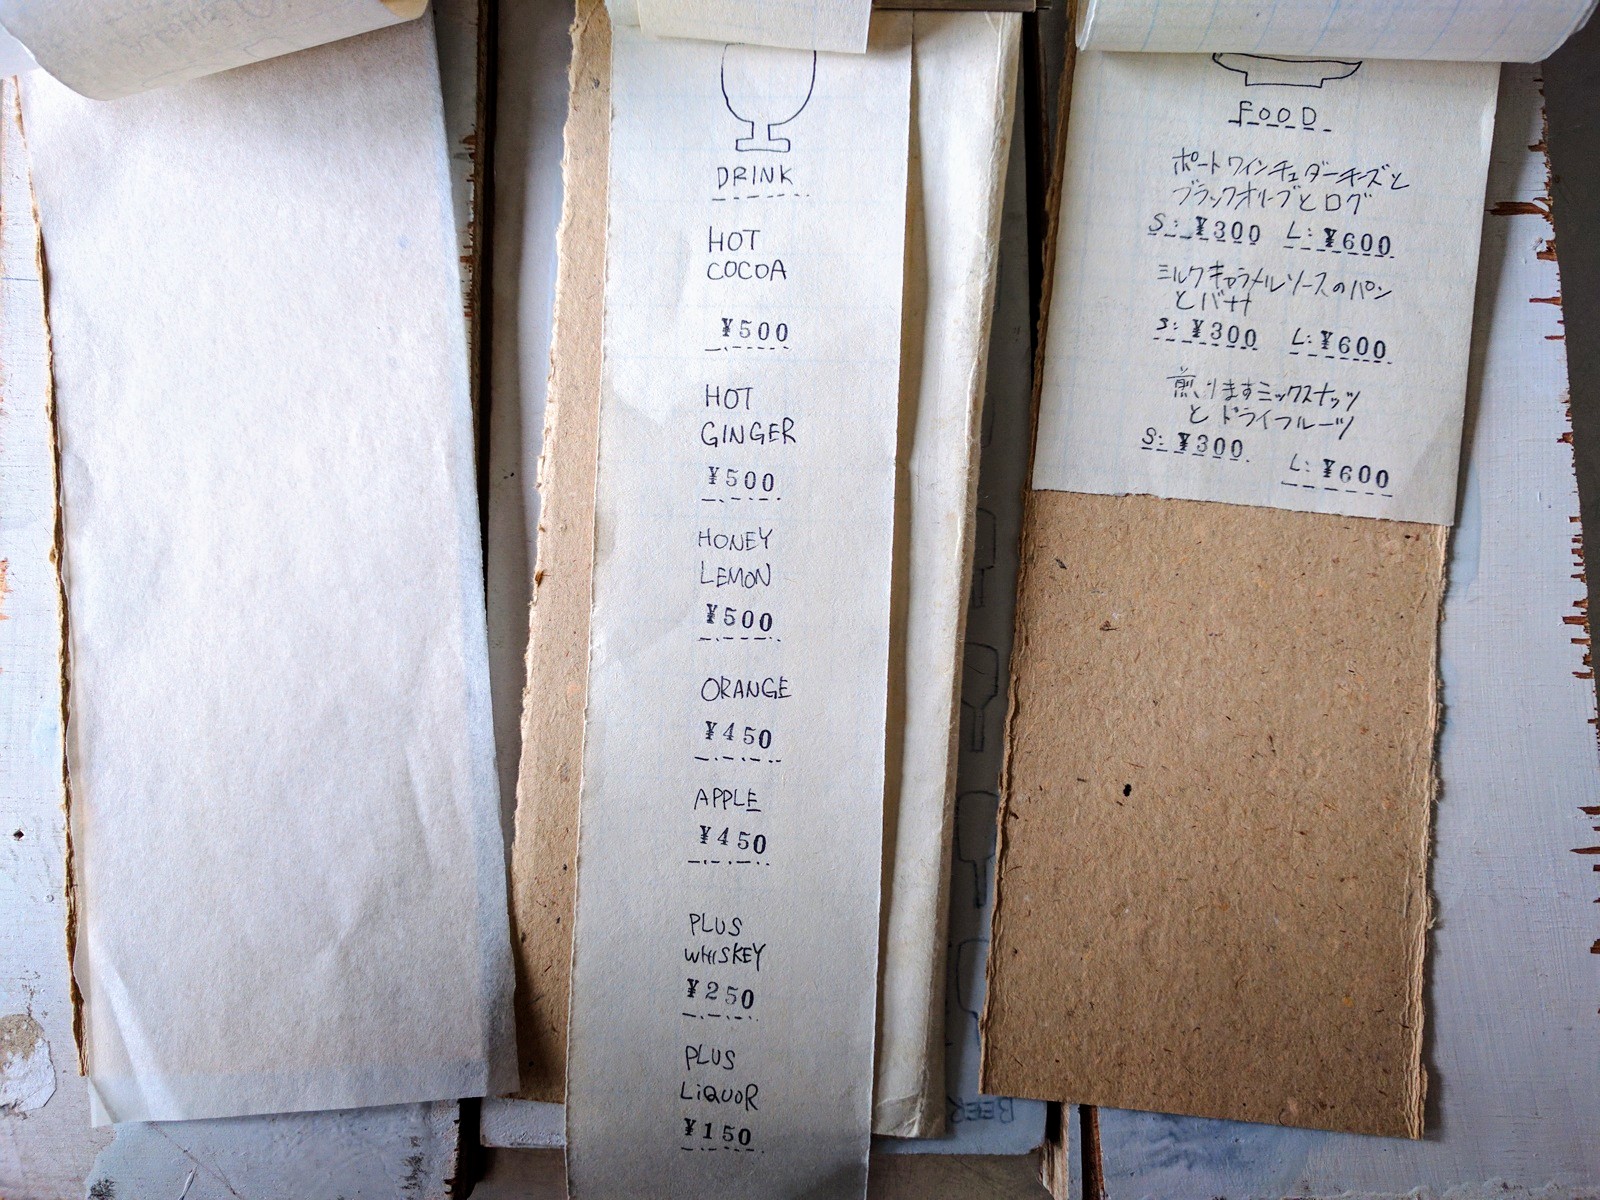 DRINK
HOT
COCOA
¥500
HOT
GINGER
¥500
HONEY
LEMON
¥500
ORANGE
¥450
APPLE
¥450
PLUS
WHISKEY
¥250
PLUS
LiQUOR
¥150
BEER
FOOD
ポートワインチェダーチーズと
ブラックオリーブとログ
S:¥300 L:¥600
ミルクキャラメルソースのパン
とバナナ
S:¥300 L:¥600
煎りますミックスナッツ
とドライフルーツ
S:¥300.
L:¥600